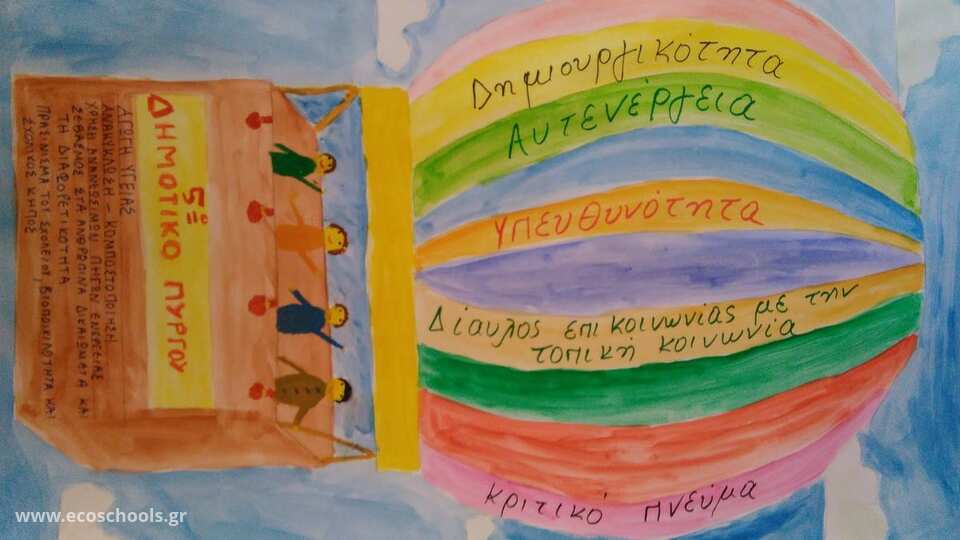 Δημιουργικότητα
Αυτενέργεια
Υπευθυνότητα
Δίαυλος επικοινωνίας με την
τοπική κοινωνία
κριτικό πνεύμα
5ο
ΔΗΜΟΤΙΚΟ ΠΥΡΓΟΥ
ΑΓΩΓΗ ΥΓΕΙΑΣ
ΑΝΑΚΥΚΛΩΣΗ - ΚΟΜΠΟΣΤΟΠΟΙΗΣΗ
ΧΡΗΣΗ ΑΝΑΝΕΩΣΙΜΩΝ ΠΗΓΩΝ ΕΝΕΡΓΕΙΑΣ
ΣΕΒΑΣΜΟΣ ΣΤΑ ΑΝΘΡΩΠΙΝΑ ΔΙΚΑΙΩΜΑΤΑ ΚΑΙ
ΤΗ ΔΙΑΦΟΡΕΤΙΚΟΤΗΤΑ
ΠΡΑΣΙΝΙΣΜΑ ΤΟΥ ΣΧΟΛΕΙΟΥ, ΒΙΟΠΟΙΚΙΛΟΤΗΤΑ ΚΑΙ
ΣΧΟΛΙΚΟΣ ΚΗΠΟΣ
www.ecoschools.gr